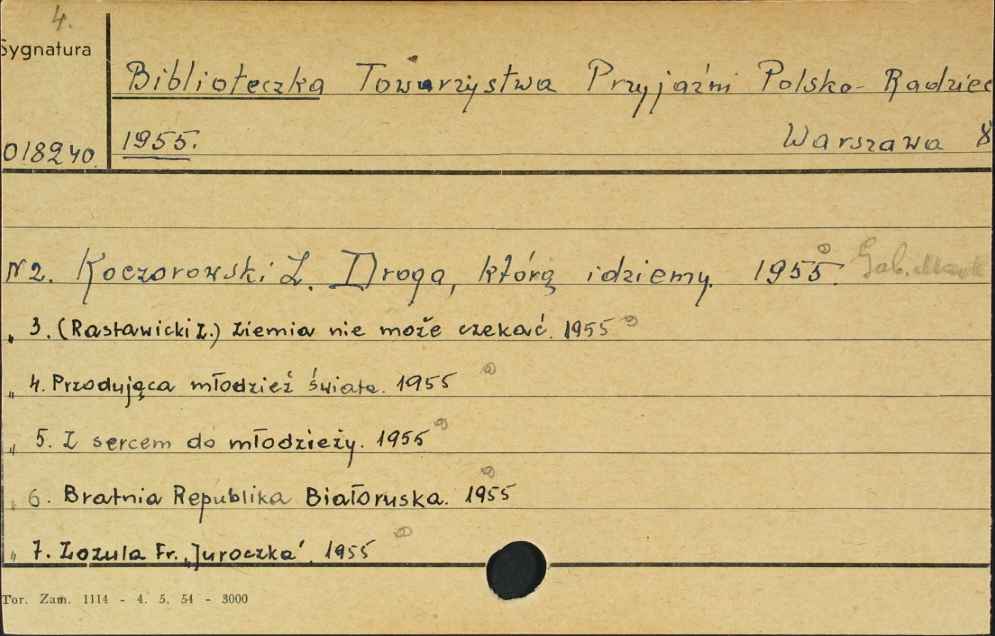 4.
Sygnatura
Biblioteczka Towarzystwa Przyjaźni Polsko-Radziec
018240. 1955. Warszawa 8
N2. Koczorowski Z. Droga, którą idziemy. 1955. Gab.
„ 3. (Rastawicki Z.) Ziemia nie może czekać. 1955
„ 4. Przodująca młodzież świata. 1955
„ 5. Z sercem do młodzieży. 1955
„ 6. Bratnia Republika Białoruska. 1955
„ 7. Zozula Fr. „Juroczka". 1955
Tor. Zam. 1114 - 4. 5. 54 - 3000